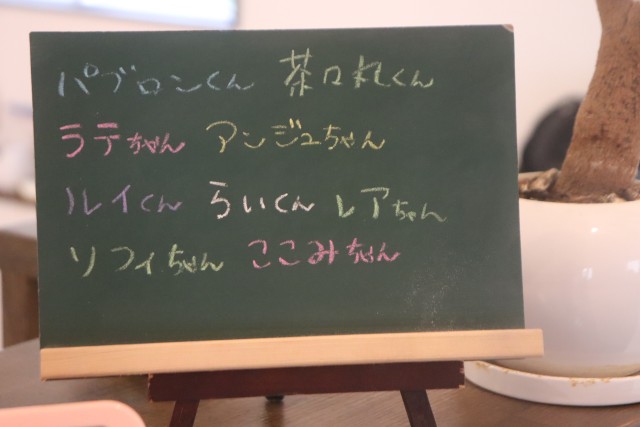 パブロンくん 茶口れくん
ラテちゃん アンジュちゃん
ルイくん らいくん レアちゃん
ソフィちゃん ここみちゃん